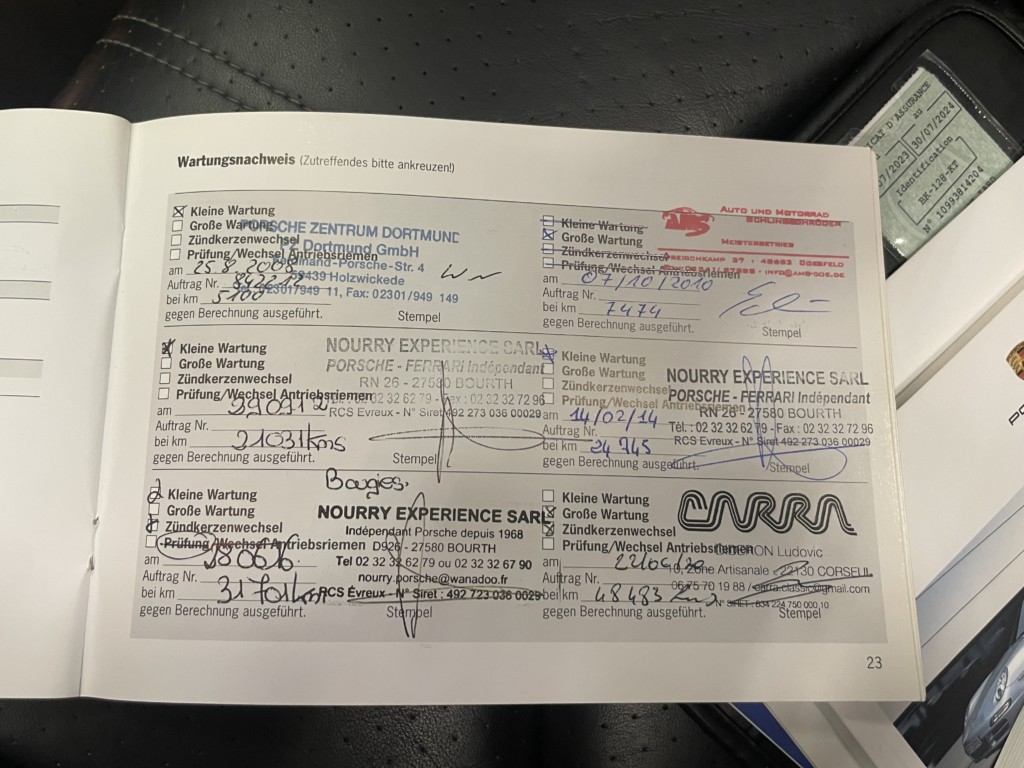 Wartungsnachweis (Zutreffendes bitte ankreuzen!)
Kleine Wartung
Große Wartung
Zündkerzenwechsel
Prüfung/Wechsel Antriebsriemen
am 25.8.2008
Auftrag Nr.
bei km 5100
gegen Berechnung ausgeführt.
Stempel
PORSCHE ZENTRUM DORTMUND
Dortmund GmbH
Ferdinand-Porsche-Str. 4
59439 Holzwickede
02301/949 11, Fax: 02301/949 149
Kleine Wartung
Große Wartung
Zündkerzenwechsel
Prüfung/Wechsel Antriebsriemen
am 07/10/2010
Auftrag Nr.
bei km 7474
gegen Berechnung ausgeführt.
Stempel
AUTO UND MOTORRAD
MEISTERBETRIEB
Kleine Wartung
Große Wartung
Zündkerzenwechsel
Prüfung/Wechsel Antriebsriemen
am
Auftrag Nr.
bei km 21031kms
gegen Berechnung ausgeführt.
Stempel
NOURRY EXPERIENCE SARL
PORSCHE - FERRARI Indépendant
RN 26 - 27580 BOURTH
Tél. : 02 32 32 62 79 - Fax : 02 32 32 72 96
RCS Evreux - N° Siret 492 273 036 00029
Kleine Wartung
Große Wartung
Zündkerzenwechsel
Prüfung/Wechsel Antriebsriemen
am 14/02/14
Auftrag Nr.
bei km 24745
gegen Berechnung ausgeführt.
Stempel
NOURRY EXPERIENCE SARL
PORSCHE - FERRARI Indépendant
RN 26 - 27580 BOURTH
Tél. : 02 32 32 62 79 - Fax : 02 32 32 72 96
RCS Evreux - N° Siret 492 273 036 00029
Bougies.
Kleine Wartung
Große Wartung
Zündkerzenwechsel
Prüfung/Wechsel Antriebsriemen
am 280616
Auftrag Nr.
bei km 31701km
gegen Berechnung ausgeführt.
Stempel
NOURRY EXPERIENCE SARL
Indépendant Porsche depuis 1968
D926 - 27580 BOURTH
Tel 02 32 32 62 79 ou 02 32 32 67 90
nourry.porsche@wanadoo.fr
RCS Évreux - N° Siret : 492 723 036 0029
Kleine Wartung
Große Wartung
Zündkerzenwechsel
Prüfung/Wechsel Antriebsriemen
am
Auftrag Nr.
bei km 48483
gegen Berechnung ausgeführt.
Stempel
CARRA
Ludovic
Zone Artisanale - 22130 CORSEUL
06 75 70 19 88 / carra.classic@gmail.com
N° SIRET : 834 224 750 000 10
23
D'ASSURANCE
au
30/07/2024
Identification
BK-128-KT
N° 10993814204